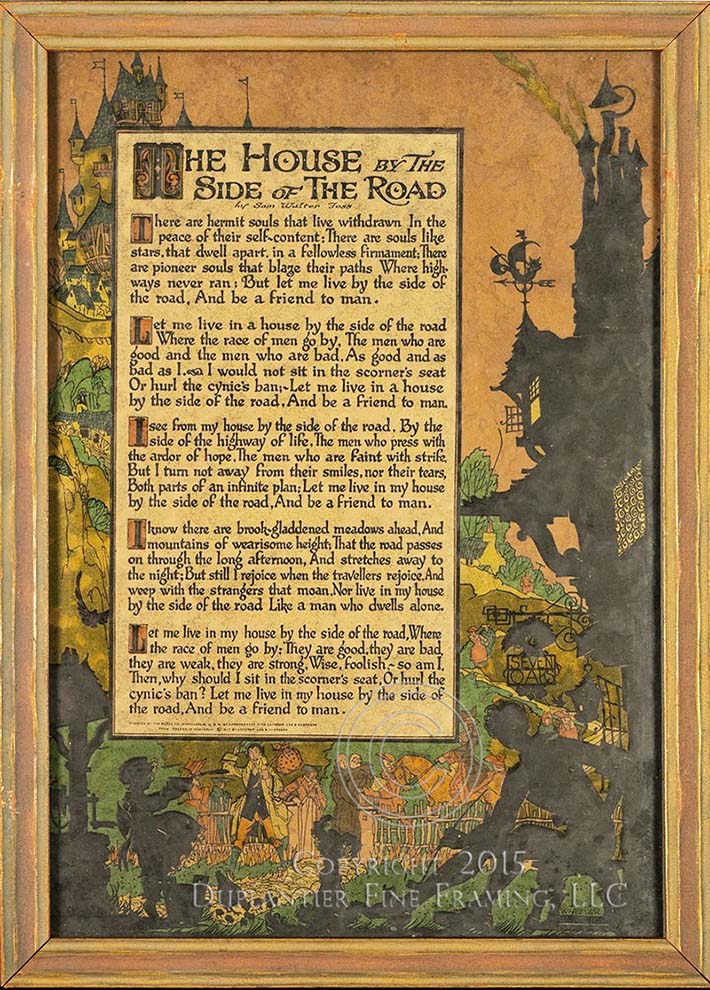 THE HOUSE BY THE
SIDE OF THE ROAD
by Sam Walter Foss
There are hermit souls that live withdrawn In the
peace of their self-content; There are souls like
stars, that dwell apart, in a fellowless firmament; There
are pioneer souls that blaze their paths Where high-
ways never ran; But let me live by the side of
the road, And be a friend to man.
Let me live in a house by the side of the road
Where the race of men go by, The men who are
good and the men who are bad, As good and as
bad as I. I would not sit in the scorner's seat
Or hurl the cynic's ban;- Let me live in a house
by the side of the road, And be a friend to man.
I see from my house by the side of the road, By the
side of the highway of life, The men who press with
the ardor of hope, The men who are faint with strife.
But I turn not away from their smiles, nor their tears,
Both parts of an infinite plan; Let me live in my house
by the side of the road, And be a friend to man.
I know there are brook-gladdened meadows ahead, And
mountains of wearisome height; That the road passes
on through the long afternoon, And stretches away to
the night; But still I rejoice when the travellers rejoice, And
weep with the strangers that moan, Nor live in my house
by the side of the road Like a man who dwells alone.
Let me live in my house by the side of the road, Where
the race of men go by; They are good, they are bad,
they are weak, they are strong, Wise, foolish,- so am I.
Then, why should I sit in the scorner's seat, Or hurl the
cynic's ban? Let me live in my house by the side of
the road, And be a friend to man.
SEVEN
OAKS
COPYRIGHT 2015
DUPLANTIER FINE FRAMING, LLC